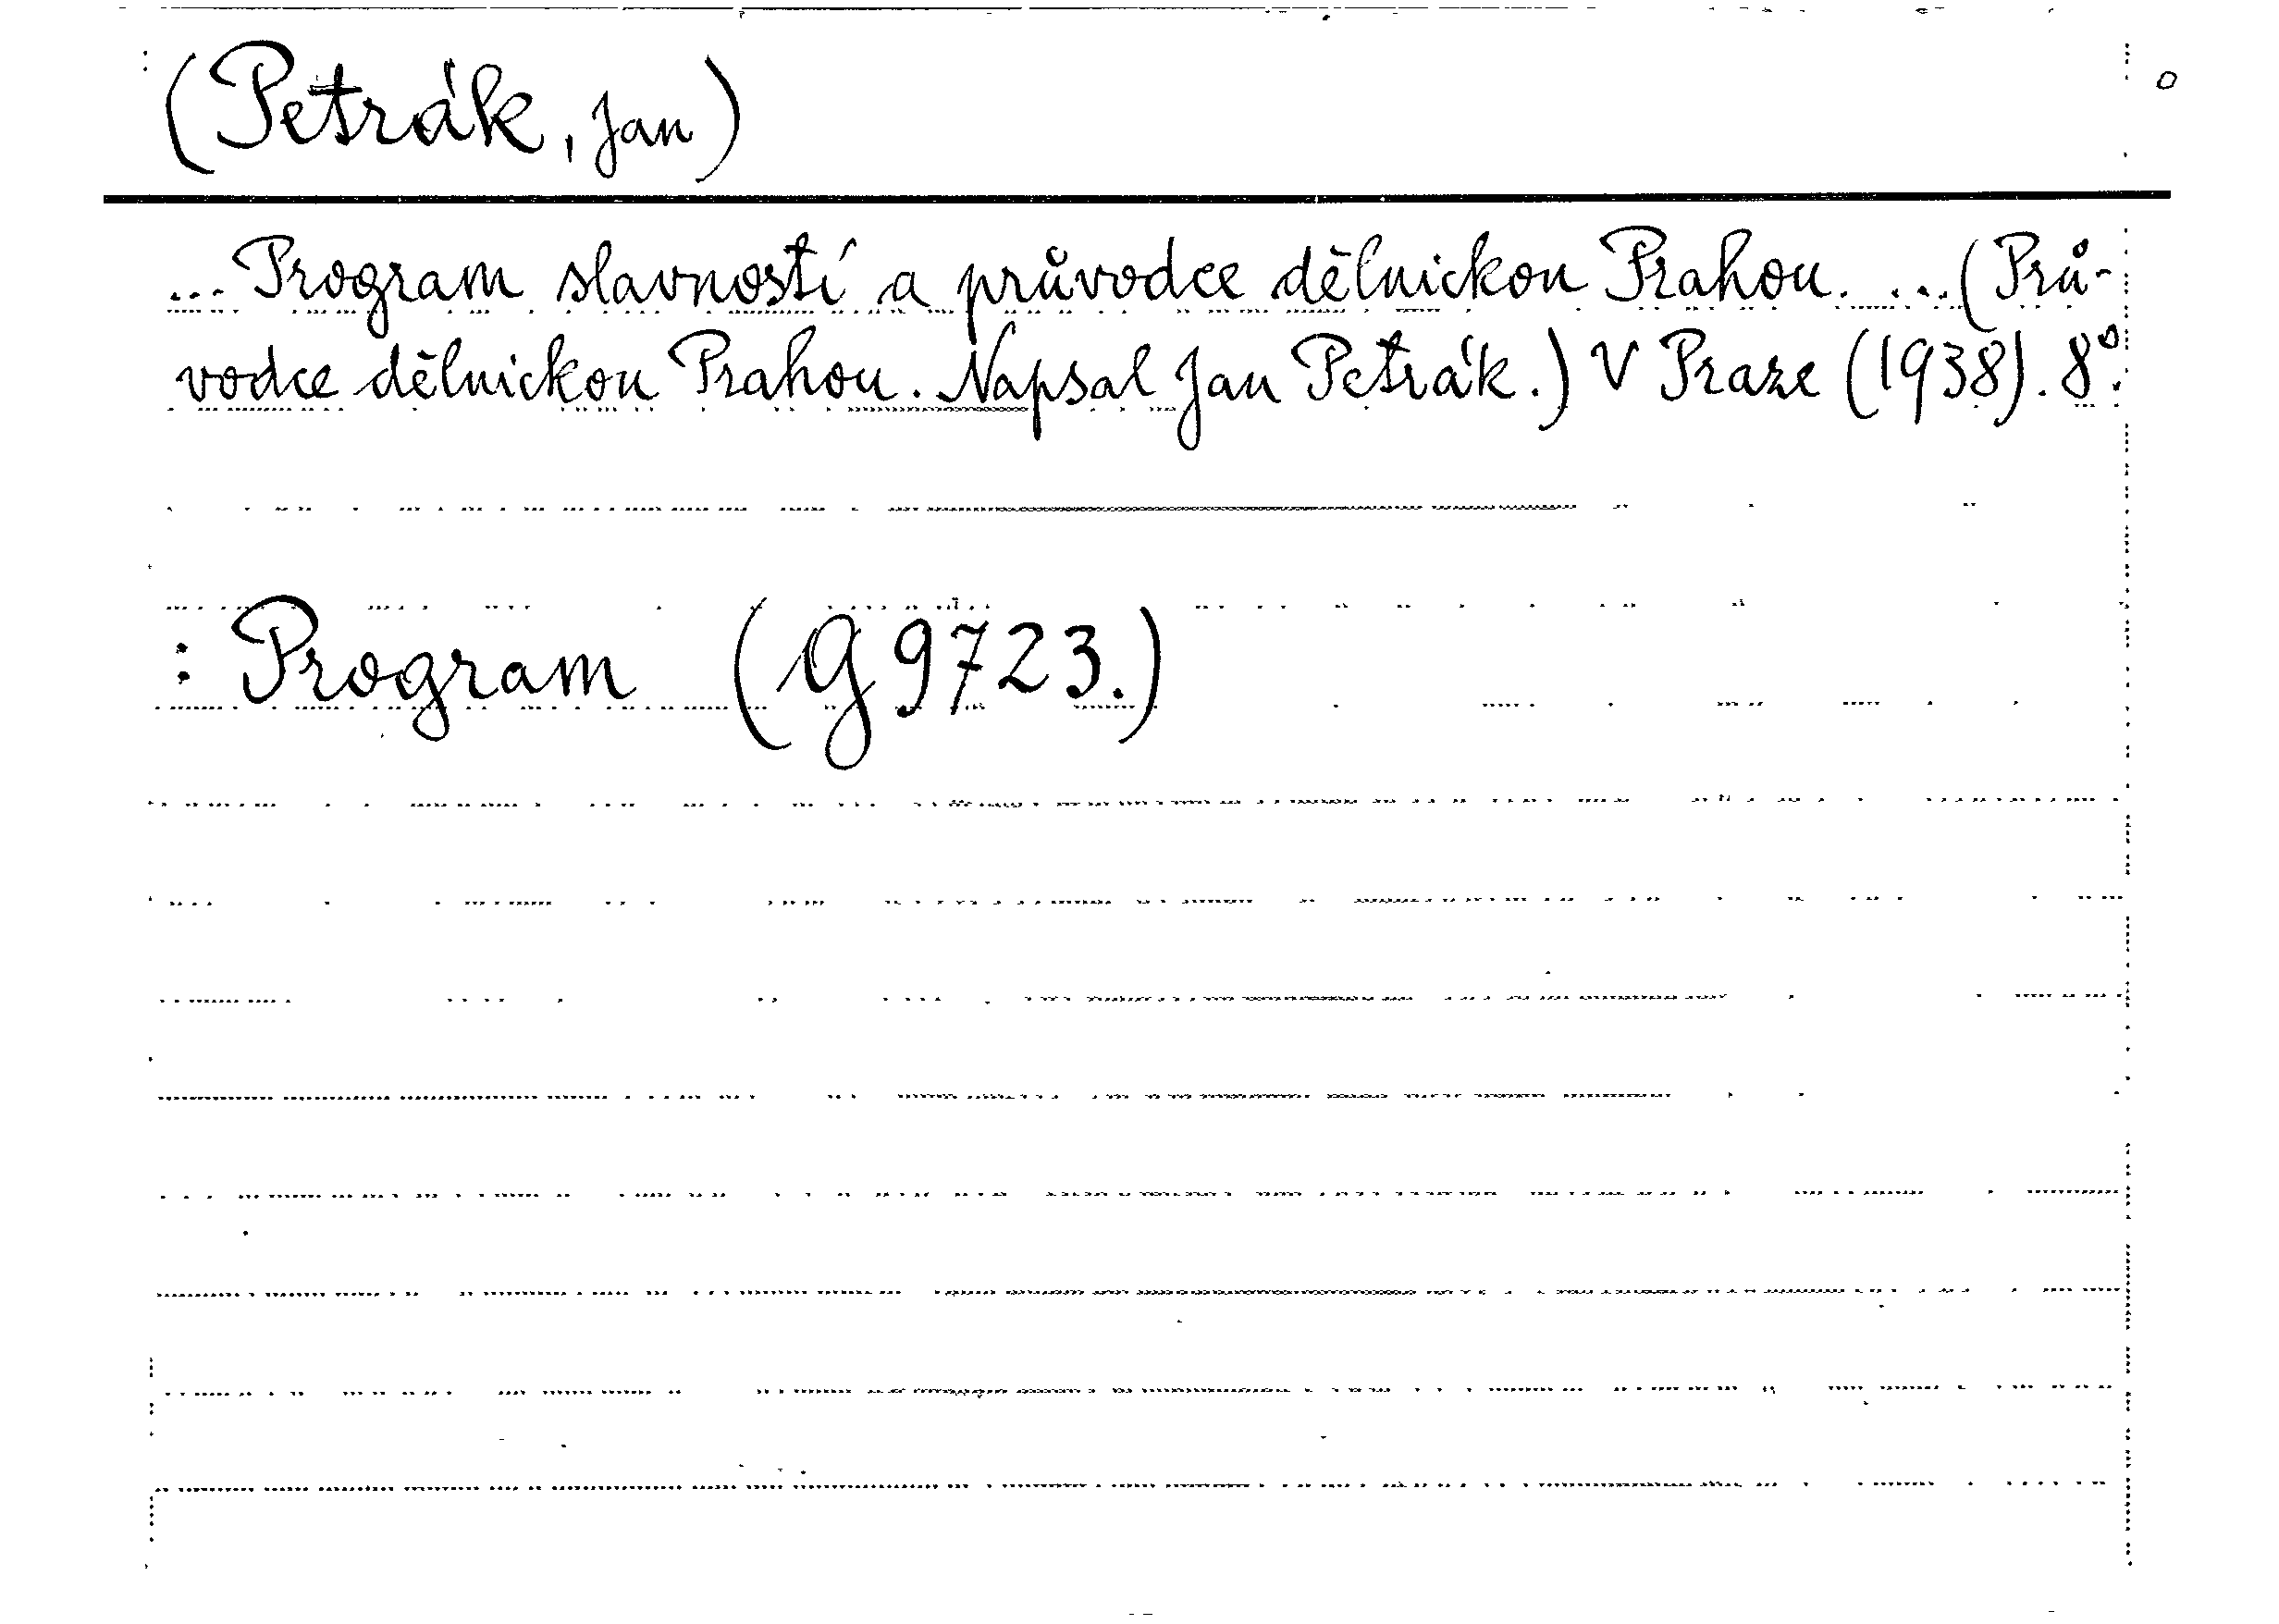 (Petrák, Jan)
... Program slavností a průvodce dělnickou Prahou. ... (Prů-
vodce dělnickou Prahou. Napsal Jan Petrák.) V Praze (1938). 8°.
: Program (G 9723.)